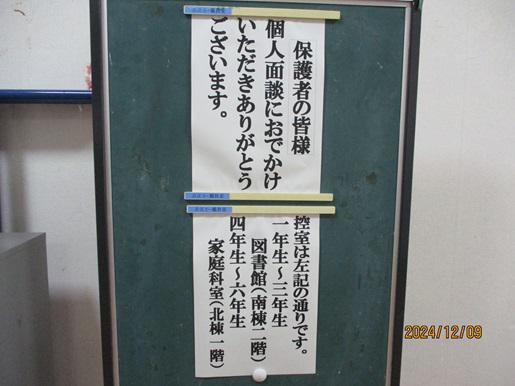 保護者の皆様
個人面談におでかけ
いただきありがとう
ございます。
控室は左記の通りです。
一年生～三年生
図書館（南棟二階）
四年生～六年生
家庭科室（北棟一階）
2024/12/09